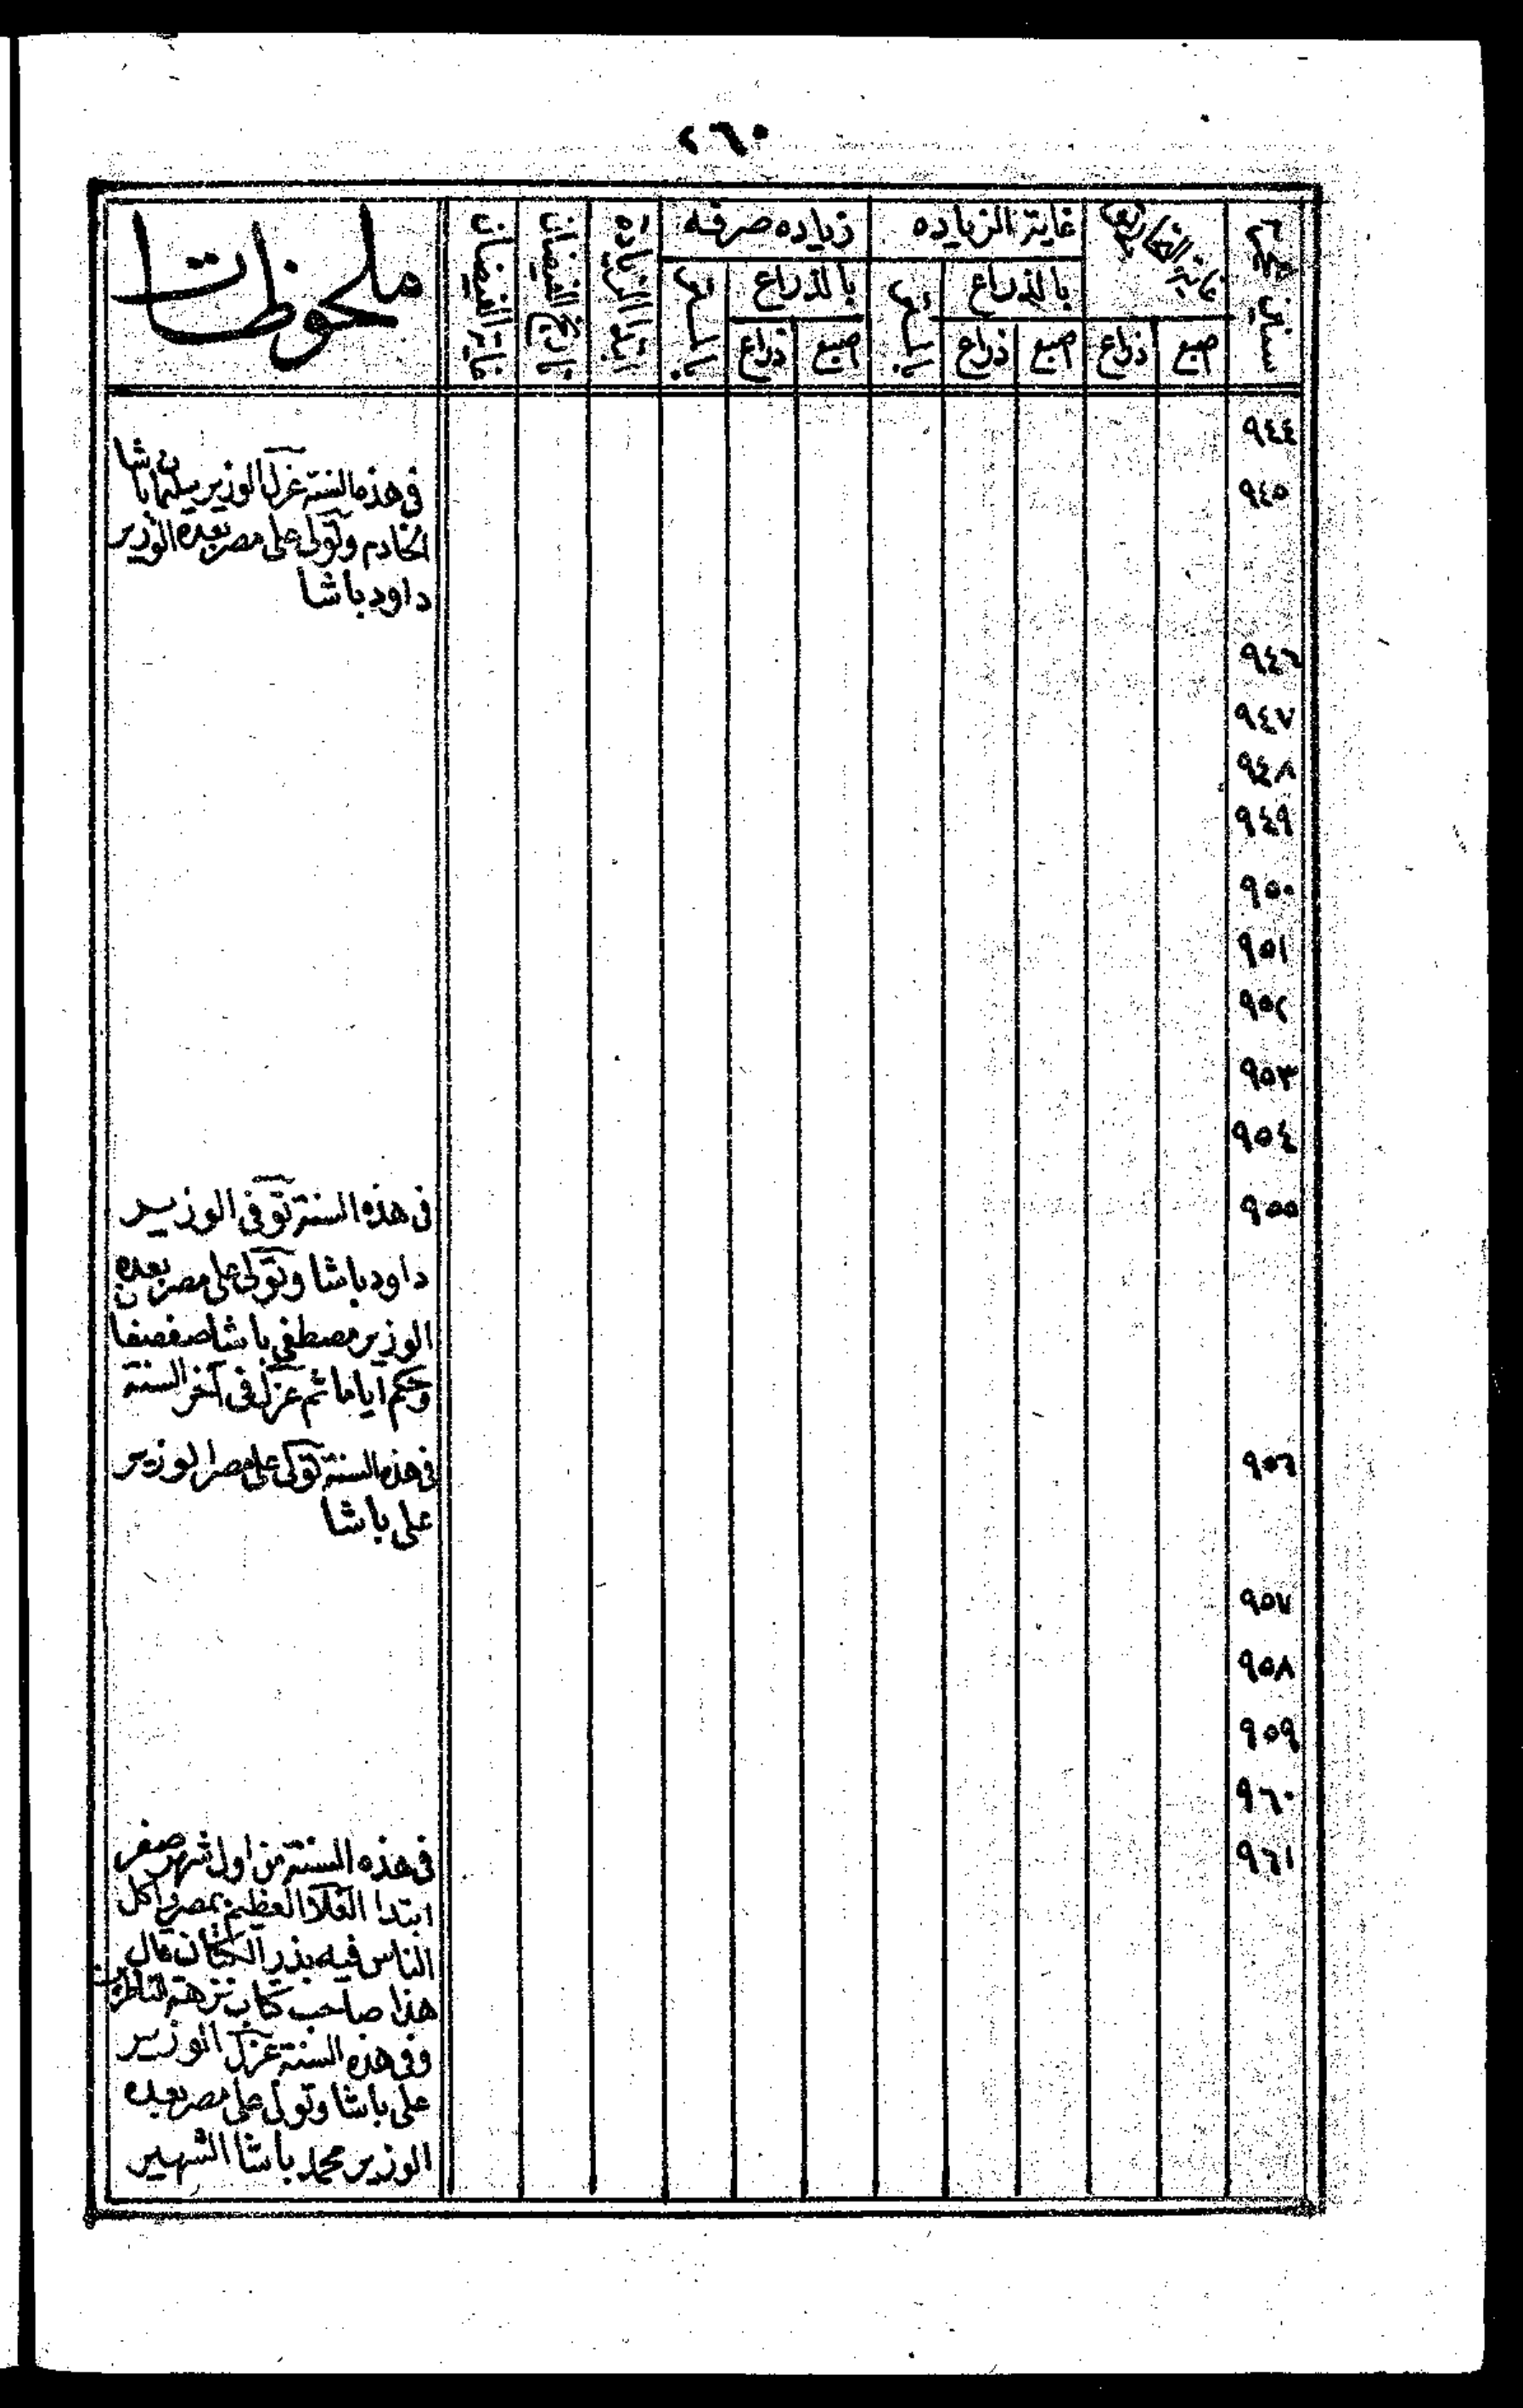 ٢٦٠
سنين هجريه
غاية التحاريق
غاية الزياده
زياده صرفه
ابتدا الزيادة
تاريخ الفيضان
غاية الفيضان
ملحوظات
بالذراع
بالذراع
اصبع
ذراع
اصبع
ذراع
اصبع
ذراع
٩٤٤
٩٤٥
فى هذه السنة عزل الوزير سليمان باشا
الخادم وتولى على مصر بعده الوزير
داود باشا
٩٤٦
٩٤٧
٩٤٨
٩٤٩
٩٥٠
٩٥١
٩٥٢
٩٥٣
٩٥٤
٩٥٥
فى هذه السنة توفى الوزير
داود باشا وتولى على مصر بعده
الوزير مصطفى باشا صفصفان
وحكم اياما ثم عزل فى آخر السنة
٩٥٦
فى هذه السنة تولى على مصر الوزير
على باشا
٩٥٧
٩٥٨
٩٥٩
٩٦٠
٩٦١
فى هذه السنة من اول شهر صفر
ابتدا الغلا العظيم بمصر واكل
الناس فيه بذر الكتان قال
هذا صاحب كتاب نزهة الناظرين
وفى هذه السنة عزل الوزير
على باشا وتولى على مصر بعده
الوزير محمد باشا الشهير